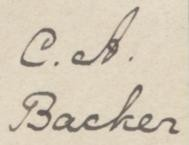 C. A.
Backer